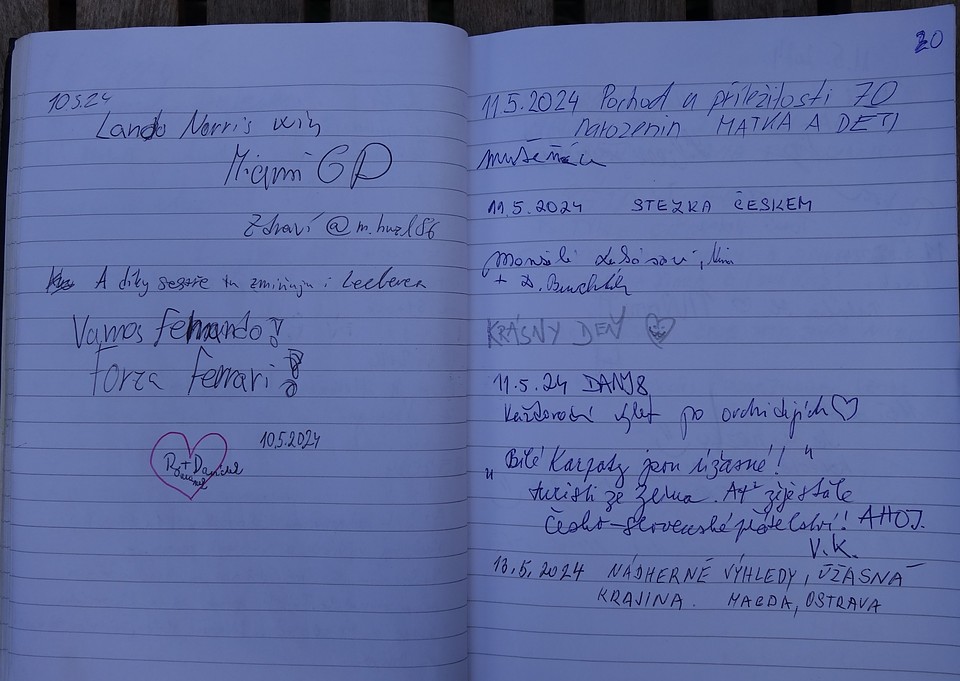 10.5.24
Lando Norris win
Miami GP
Zdraví @m.huzl86
A díky sestře tu zmiňuju i Leclerca
Vamos Fernando!
Forza Ferrari!
10.5.2024
+ Daniel
20
11.5.2024 Pochod u příležitosti 70
narozenin MATKA A DĚTI
11.5.2024 STEZKA ČESKEM
+ D.
KRÁSNÝ DEN
11.5.24 DANY&
Každoroční výlet po orchidejích
"Bílé Karpaty jsou úžasné!"
turisti ze Zlína. Ať žije stále
Česko-slovenské přátelství! AHOJ.
V.K.
13.5.2024 NÁDHERNÉ VÝHLEDY, ÚŽASNÁ
KRAJINA. MAGDA, OSTRAVA